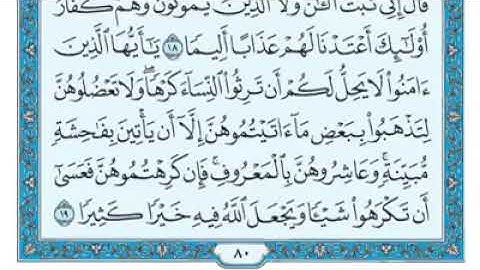 قَالَ إِنِّي تُبْتُ الْـَٰنَ وَلَا الَّذِينَ يَمُوتُونَ وَهُمْ كُفَّارٌ
أُوْلَٰٓئِكَ أَعْتَدْنَا لَهُمْ عَذَابًا أَلِيمًا ١٨ يَٰٓأَيُّهَا الَّذِينَ
ءَامَنُواْ لَا يَحِلُّ لَكُمْ أَن تَرِثُواْ النِّسَآءَ كَرْهًا ۖ وَلَا تَعْضُلُوهُنَّ
لِتَذْهَبُواْ بِبَعْضِ مَآ ءَاتَيْتُمُوهُنَّ إِلَّآ أَن يَأْتِينَ بِفَٰحِشَةٍ
مُّبَيِّنَةٍ ۚ وَعَاشِرُوهُنَّ بِالْمَعْرُوفِ ۚ فَإِن كَرِهْتُمُوهُنَّ فَعَسَىٰٓ
أَن تَكْرَهُواْ شَيْـًٔا وَيَجْعَلَ اللَّهُ فِيهِ خَيْرًا كَثِيرًا ١٩
٨٠